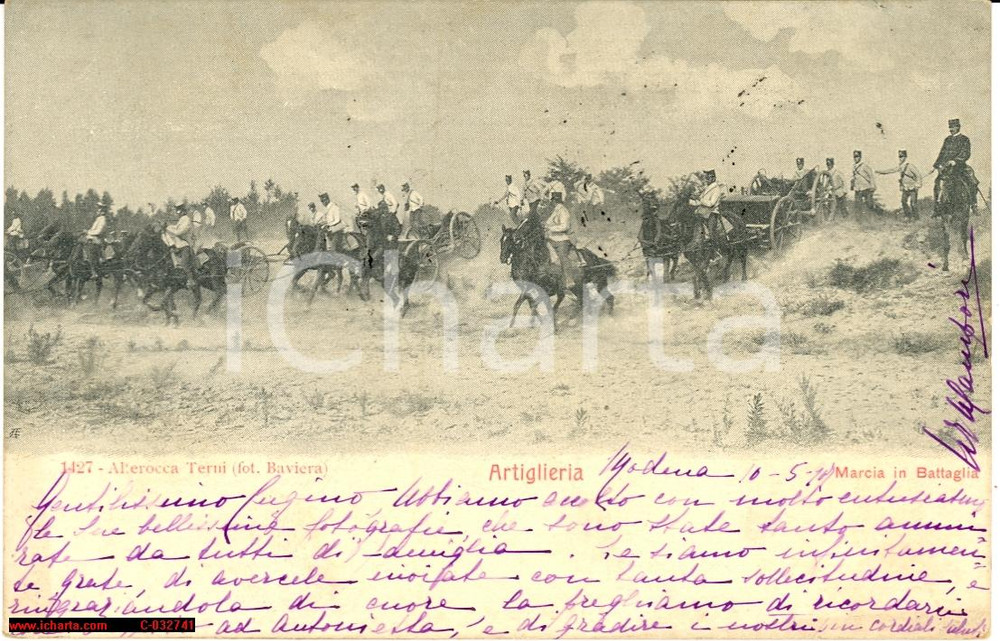 iCharta
1427 - Alterocca Terni (fot. Baviera)
Artiglieria
Marcia in Battaglia
Modena 10-5-
Gentilissimo Cugino, Abbiamo avuto con molto entusiasmo
le sue bellissime fotografie, che sono state tanto ammi
rate da tutti di famiglia. Le siamo infinitamen=
te grate, di avercele inviate con tanta sollecitudine, e
ringraziandola di cuore la preghiamo di ricordarci
ad Antonietta, e di gradire i nostri cordiali saluti
www.icharta.com C-032741